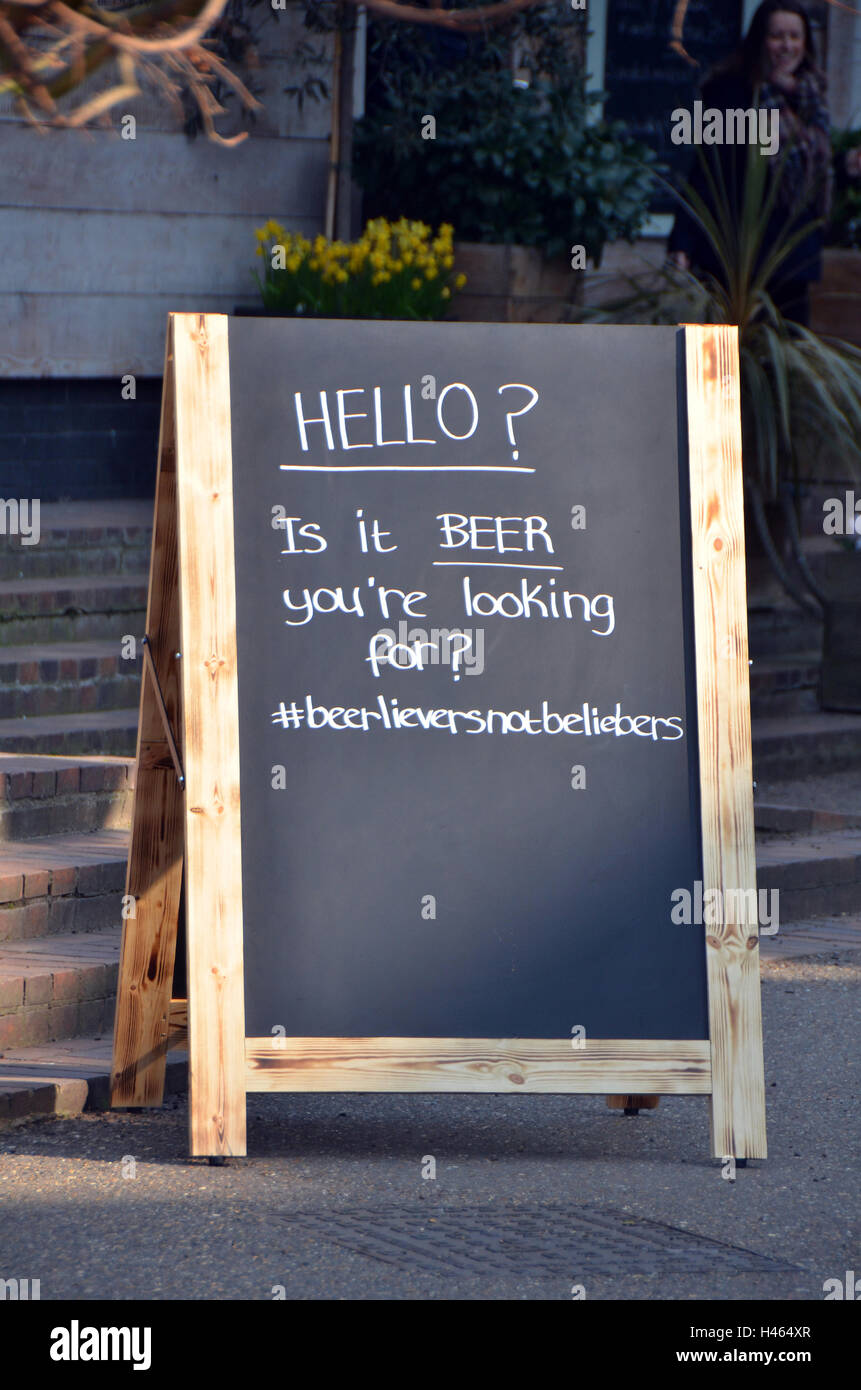 HELLO?
Is it BEER
you're looking
for?
#beerlieversnotbeliebers
alamy
Image ID: H464XR
www.alamy.com